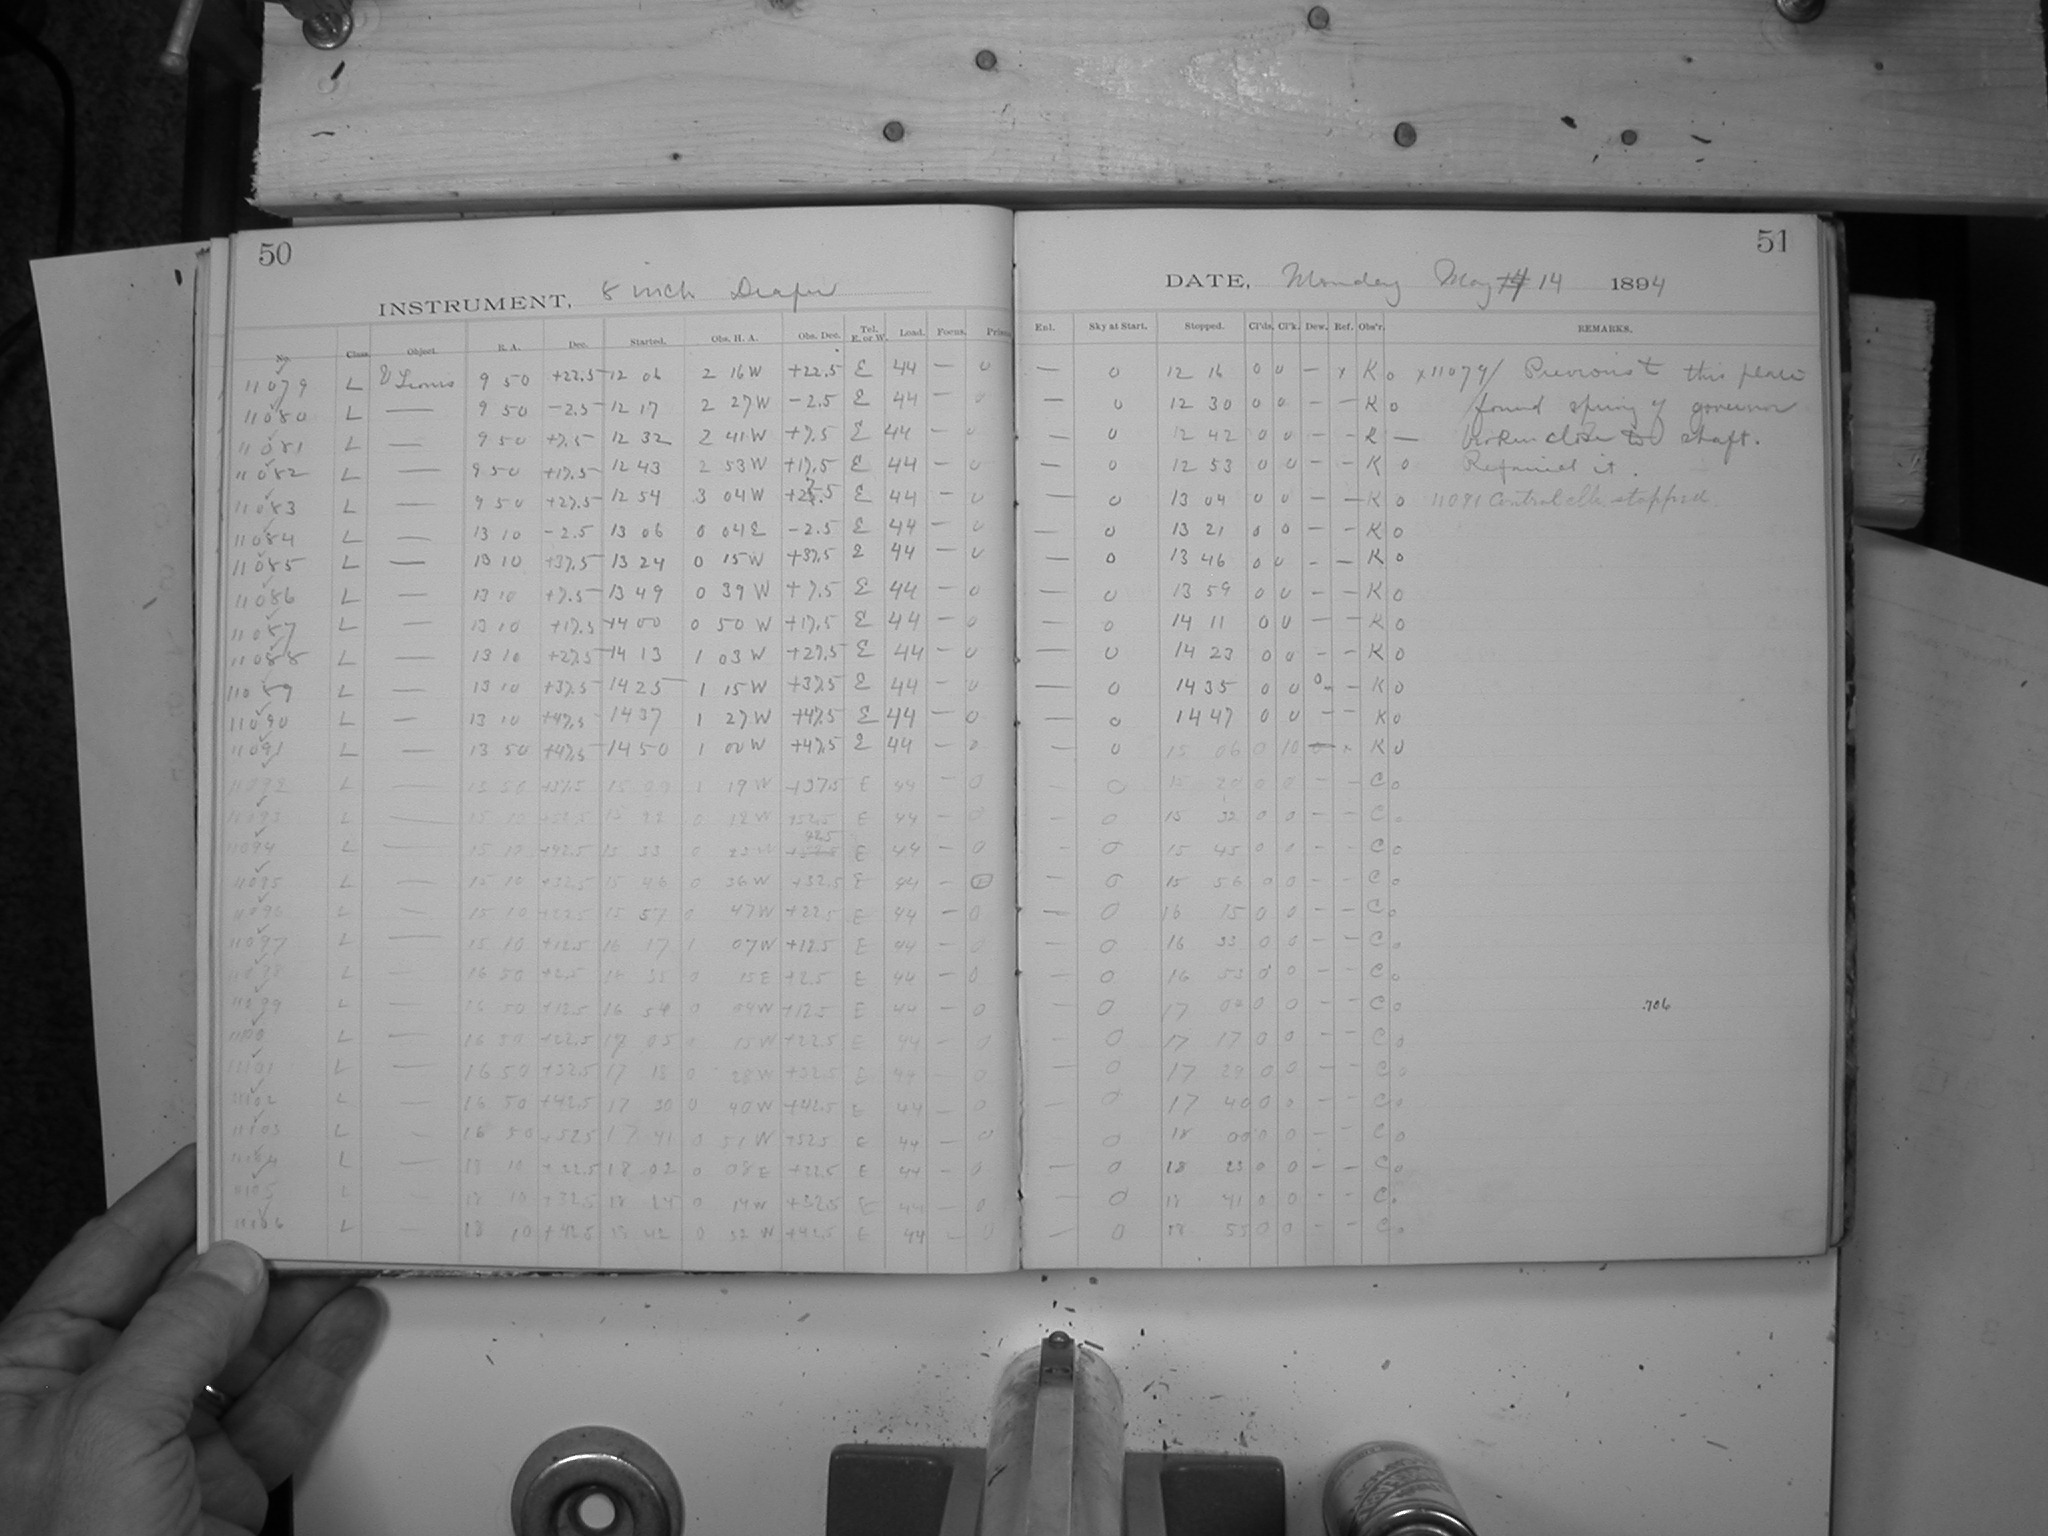 50
INSTRUMENT, 8 inch Draper
No. Class. Object. R. A. Dec. Started. Obs. H. A. Obs. Dec. Tel. E. or W. Load. Focus.
11079 L 9 50 +22.5 12 06 2 16 W +22.5 E 44 — 0
11080 L — 9 50 -2.5 12 17 2 27 W -2.5 E 44 — 0
11081 L — 9 50 +7.5 12 32 2 41 W +7.5 E 44 — 0
11082 L — 9 50 +17.5 12 43 2 53 W +17.5 E 44 — 0
11083 L — 9 50 +27.5 12 54 3 04 W E 44 — 0
11084 L — 13 10 -2.5 13 06 0 04 E -2.5 E 44 — 0
11085 L — 13 10 +37.5 13 24 0 15 W +37.5 E 44 — 0
11086 L — 13 10 +7.5 13 49 0 39 W +7.5 E 44 — 0
11087 L — 13 10 +17.5 14 00 0 50 W +17.5 E 44 — 0
11088 L — 13 10 +27.5 14 13 1 03 W +27.5 E 44 — 0
11089 L — 13 10 +37.5 14 25 1 15 W +37.5 E 44 — 0
11090 L — 13 10 +47.5 14 37 1 27 W +47.5 E 44 — 0
11091 L — 13 50 +47.5 14 50 1 00 W +47.5 E 44 — 0
11092 L — +37.5 15 09 1 19 W +37.5 E 44 — 0
11093 L — 15 10 +52.5 15 22 0 12 W +52.5 E 44 — 0
11094 L — 15 10 +42.5 15 33 0 23 W 42.5 E 44 — 0
11095 L — 15 10 +32.5 15 46 0 36 W +32.5 E 44 —
11096 L — 15 10 +22.5 15 57 0 47 W +22.5 E 44 — 0
11097 L — 15 10 +12.5 16 17 1 07 W +12.5 E 44 — 0
11098 L — 16 50 +2.5 16 35 0 15 E +2.5 E 44 — 0
11099 L — 16 50 +12.5 16 54 0 04 W +12.5 E 44 — 0
11100 L — 16 50 +22.5 17 05 0 15 W +22.5 E 44 — 0
11101 L — 16 50 +32.5 17 18 0 28 W +32.5 E 44 — 0
11102 L — 16 50 +42.5 17 30 0 40 W +42.5 E 44 — 0
11103 L — 16 50 +52.5 17 41 0 51 W +52.5 E 44 — 0
11104 L — 18 10 +22.5 18 02 0 08 E +22.5 E 44 — 0
11105 L — 18 10 +32.5 18 24 0 14 W +32.5 E 44 — 0
11106 L — 18 10 +42.5 18 42 0 32 W +42.5 E 44 — 0
51
DATE, Monday May 14 1894
Enl. Sky at Start. Stopped. Cl'ds. Cl'k. Dew. Ref. Obs'r. REMARKS.
— 0 12 16 0 0 — x K 0 x11079/ Previous to this plate
— 0 12 30 0 0 — — K 0 found spring of governor
— 0 12 42 0 0 — — K — broken close to shaft.
— 0 12 53 0 0 — — K 0 Repaired it.
— 0 13 04 0 0 — — K 0 11091 Control clk stopped.
— 0 13 21 0 0 — — K 0
— 0 13 46 0 0 — — K 0
— 0 13 59 0 0 — — K 0
— 0 14 11 0 0 — — K 0
— 0 14 23 0 0 — — K 0
— 0 14 35 0 0 — — K 0
— 0 14 47 0 0 — — K 0
— 0 15 06 0 10 x K 0
— 0 15 20 0 0 — — C 0
— 0 15 32 0 0 — — C 0
— 0 15 45 0 0 — — C 0
— 0 15 56 0 0 — — C 0
— 0 16 15 0 0 — — C 0
— 0 16 33 0 0 — — C 0
— 0 16 53 0 0 — — C 0
— 0 17 04 0 0 — — C 0 .706
— 0 17 17 0 0 — — C 0
— 0 17 29 0 0 — — C 0
— 0 17 40 0 0 — — C 0
— 0 18 00 0 0 — — C 0
— 0 18 23 0 0 — — C 0
— 0 18 41 0 0 — — C 0
— 0 18 55 0 0 — — C 0